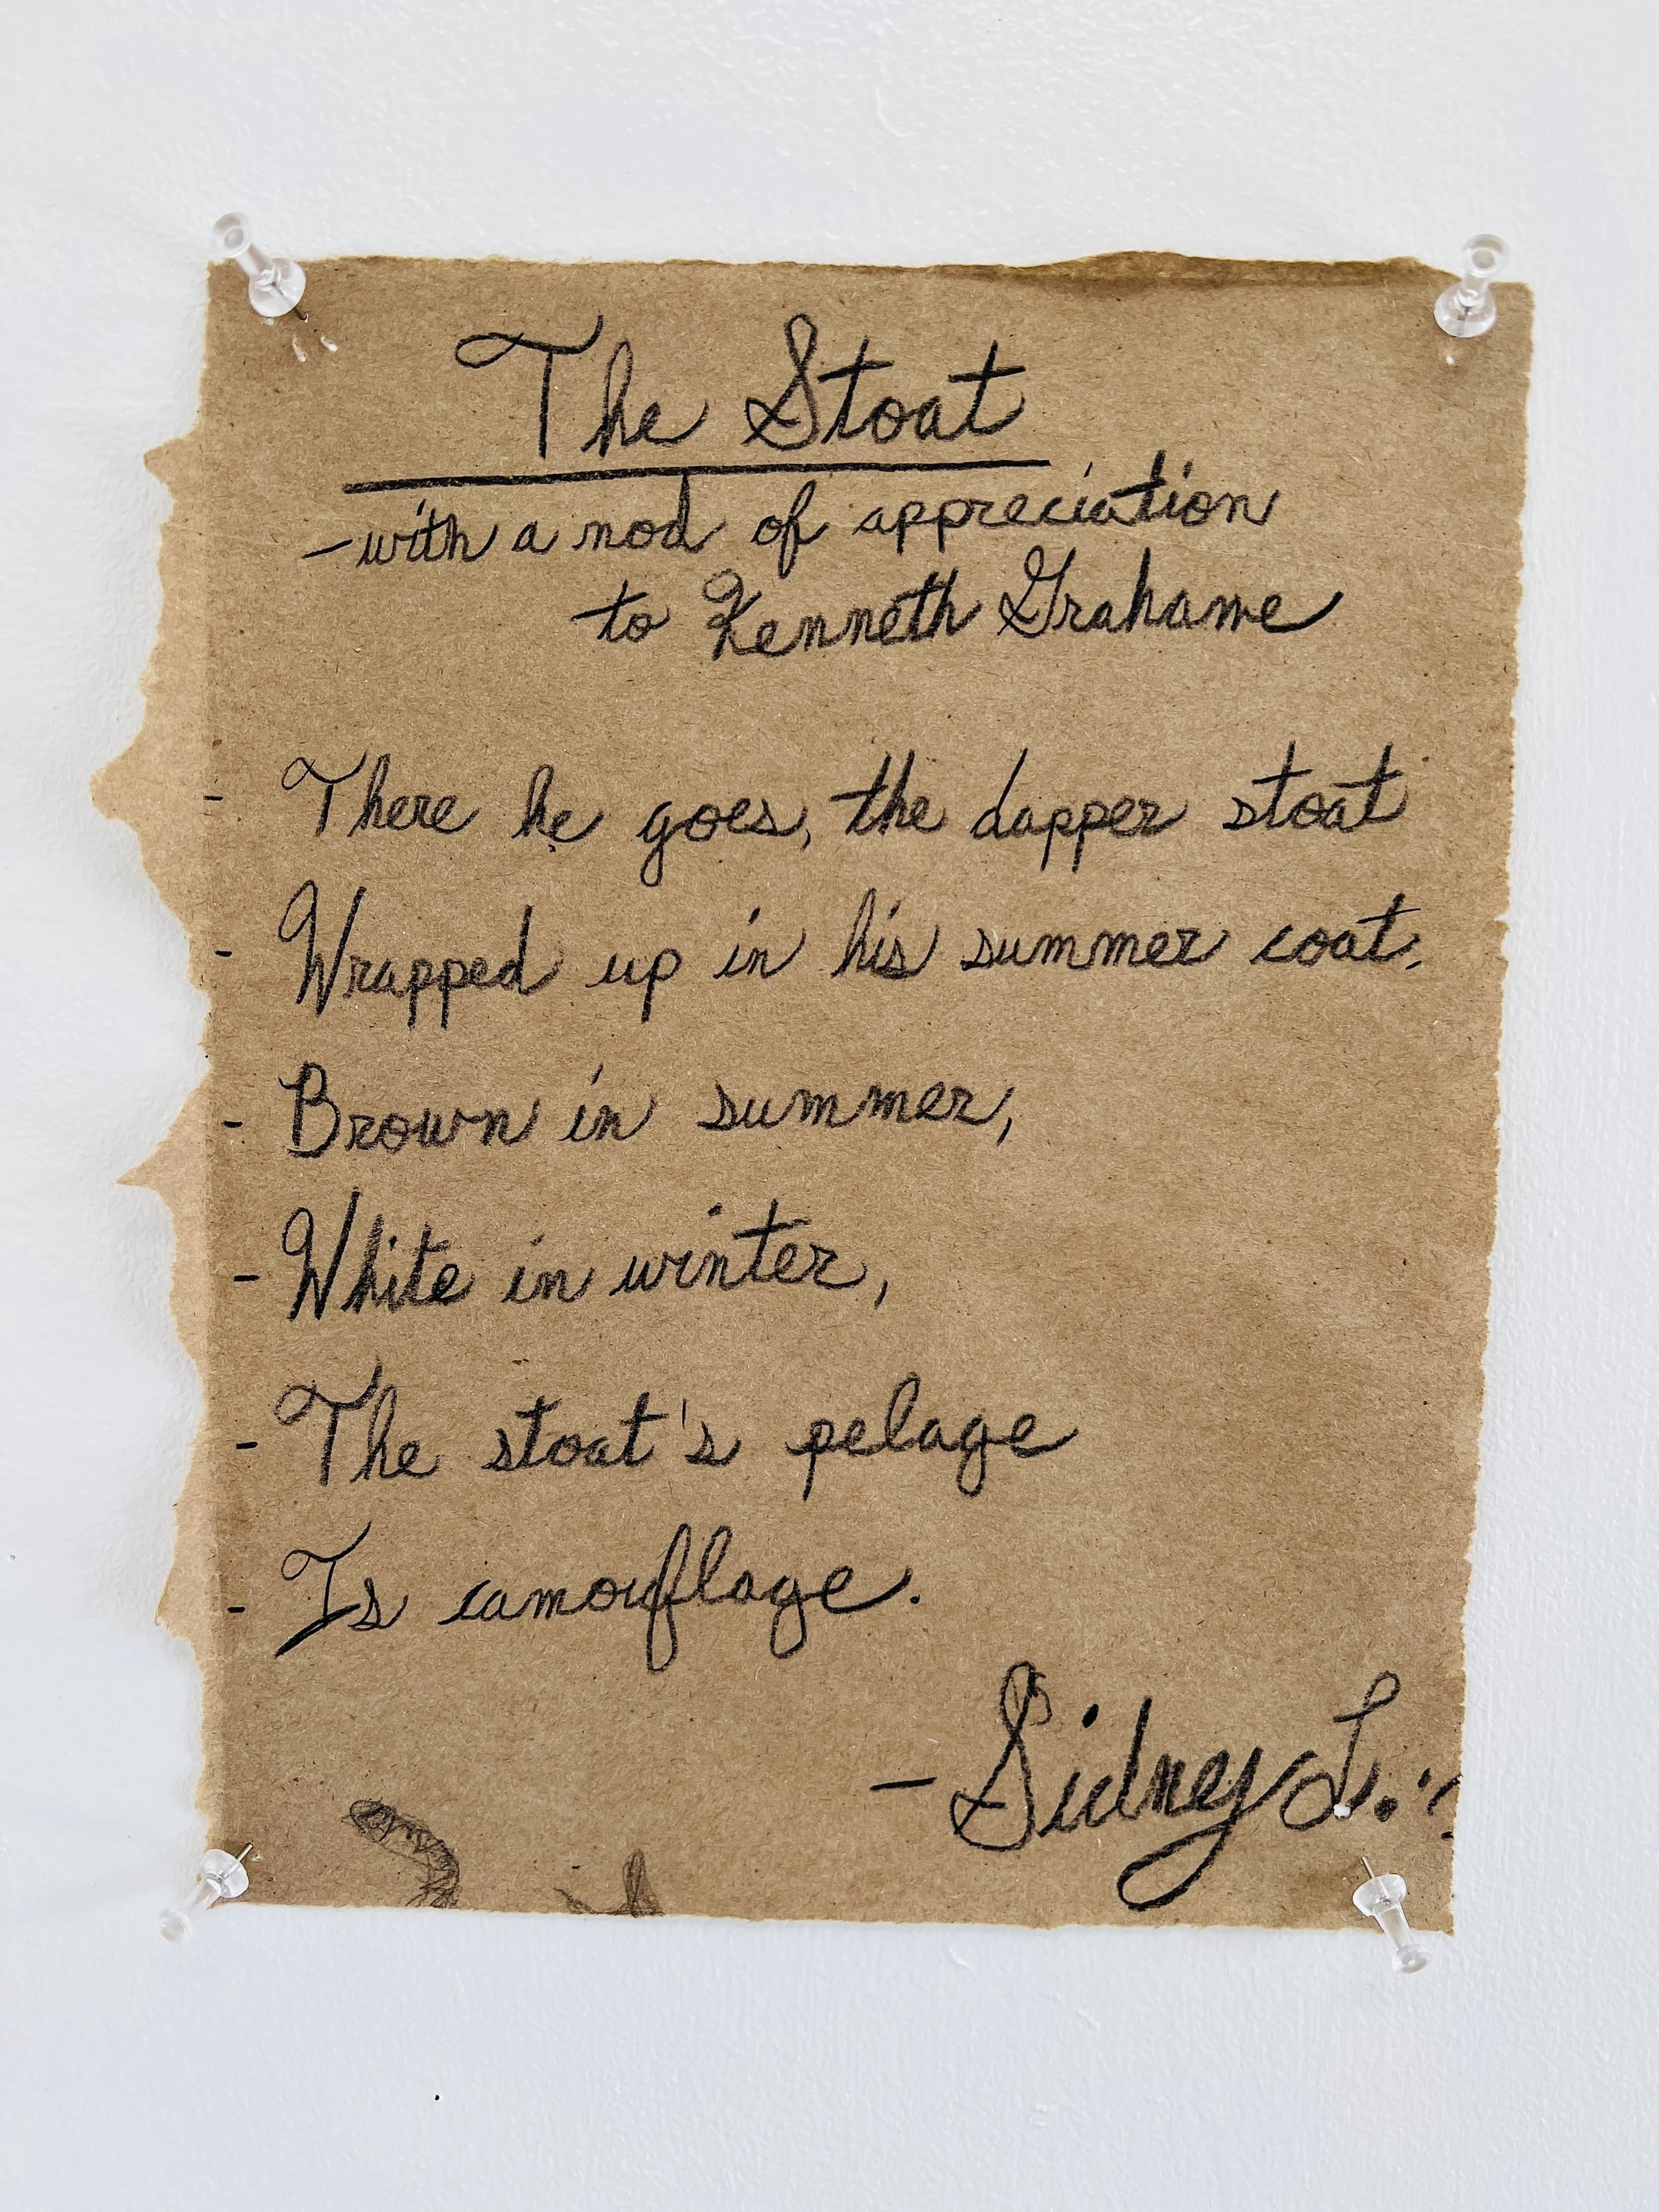 The Stoat
-with a nod of appreciation
to Kenneth Grahame
- There he goes, the dapper stoat
- Wrapped up in his summer coat.
- Brown in summer,
- White in winter,
- The stoat's pelage
- Is camouflage.
- Sidney L.